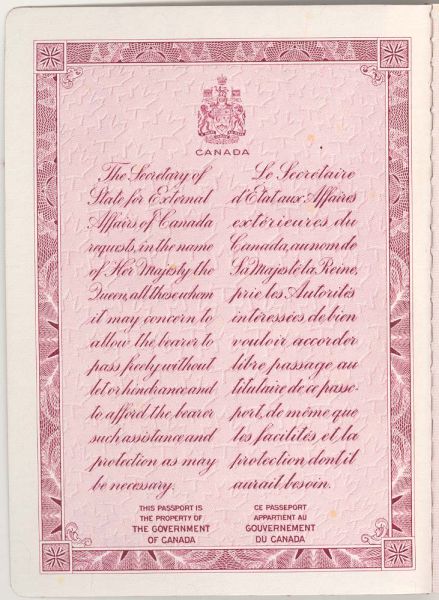 CANADA
The Secretary of
State for External
Affairs of Canada
requests, in the name
of Her Majesty the
Queen, all those whom
it may concern to
allow the bearer to
pass freely without
let or hindrance and
to afford the bearer
such assistance and
protection as may
be necessary.
THIS PASSPORT IS
THE PROPERTY OF
THE GOVERNMENT
OF CANADA
Le Secrétaire
d'État aux Affaires
extérieures du
Canada, au nom de
Sa Majesté la Reine,
prie les Autorités
intéressées de bien
vouloir accorder
libre passage au
titulaire de ce passe-
port, de même que
les facilités et la
protection dont il
aurait besoin.
CE PASSEPORT
APPARTIENT AU
GOUVERNEMENT
DU CANADA